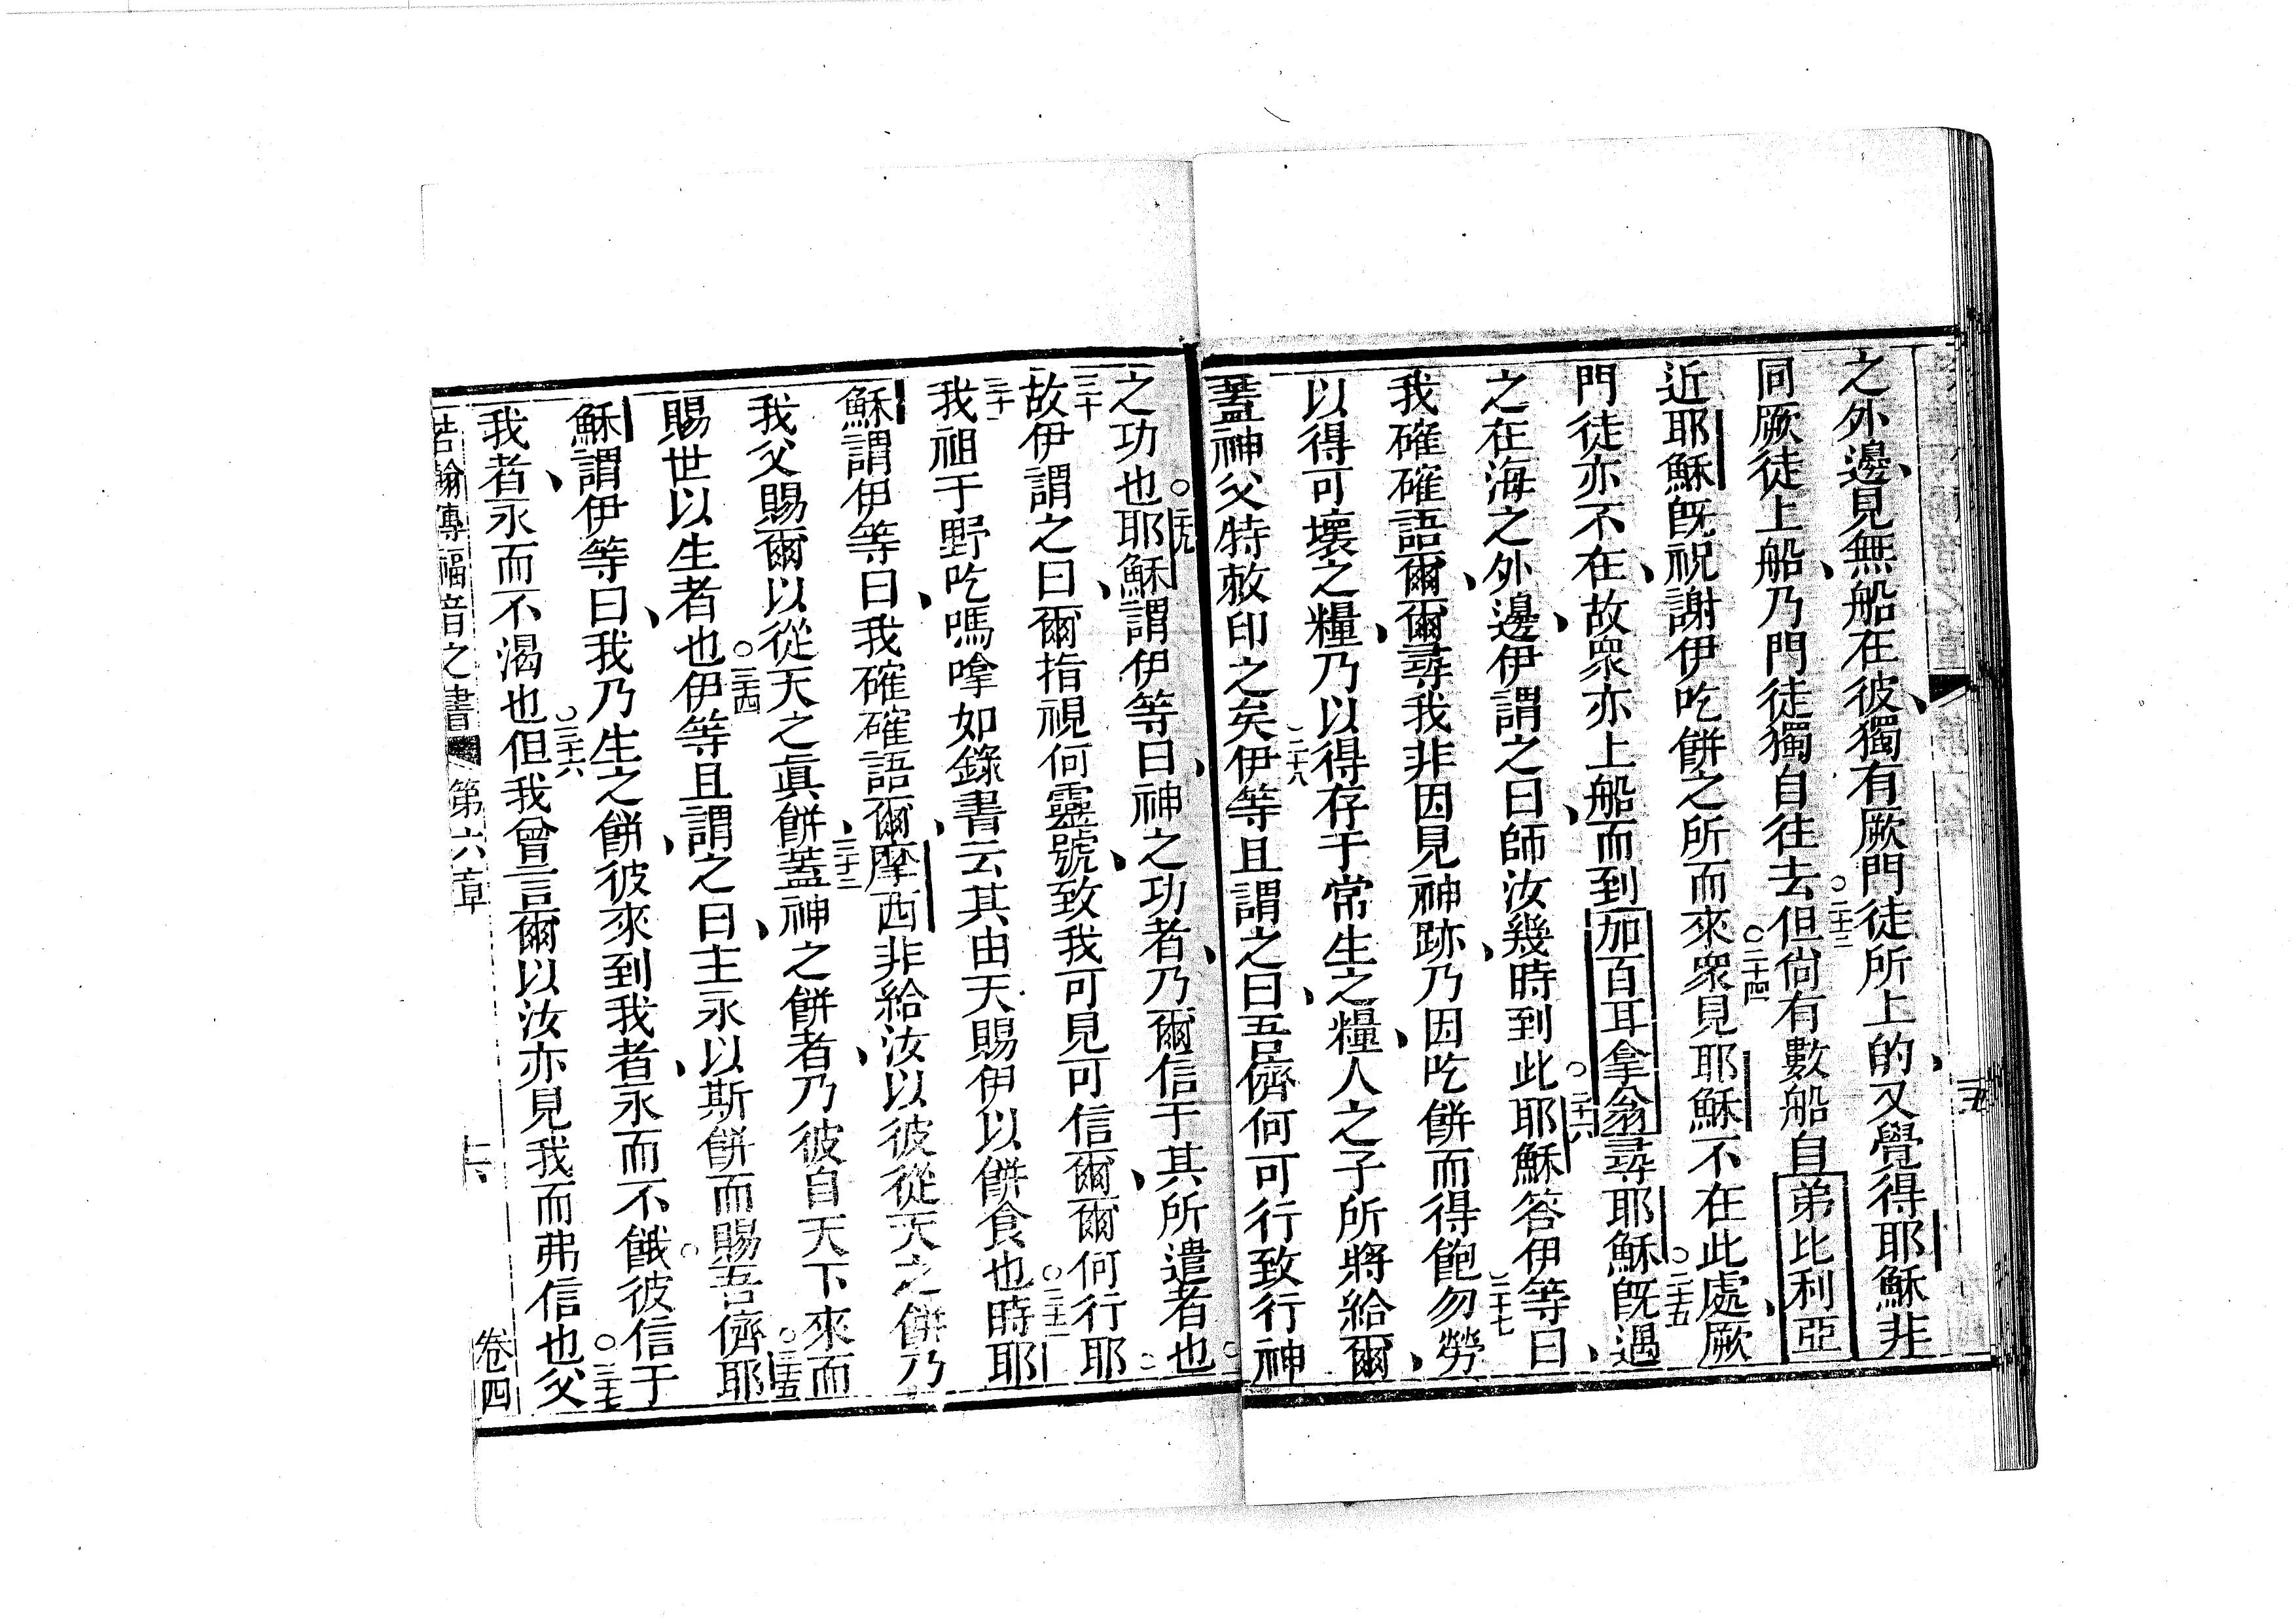 之外邊、見無船在彼、獨有厥門徒所上的、又覺得耶穌非
同厥徒上船、乃門徒獨自往去○二十三但尙有數船自弟比利亞
近耶穌旣祝謝伊吃餅之所而來○二十四衆見耶穌不在此處、厥
門徒亦不在、故衆亦上船而到加百耳拿翁尋耶穌○二十五旣遇
之在海之外邊、伊謂之曰、師汝幾時到此○二十六耶穌答伊等曰、
我確確語爾、爾尋我非因見神跡、乃因吃餅而得飽○二十七勿勞
以得可壞之糧、乃以得存于常生之糧、人之子所將給爾、
蓋神父特敕印之矣○二十八伊等且謂之曰、吾儕何可行致行神
之功也○二十九耶穌謂伊等曰、神之功者、乃爾信于其所遣者也○
三十故伊謂之曰、爾指視何靈號、致我可見可信爾、爾何行
三十一我祖于野吃嗎嗱如錄書云其由天賜伊以餅食也○三十二時耶
穌謂伊等曰、我確確語爾、摩西非給汝以彼從天之餅乃
我父賜爾以從天之眞餅、三十三蓋神之餅者、乃彼自天下來而
賜世以生者也○三十四伊等且謂之曰、主永以斯餅而賜吾儕○三十五耶
穌謂伊等曰、我乃生之餅、彼來到我者、永而不餓○彼信于
我者、永而不渴也○三十六但我曾言爾以汝亦見我而弗信也○三十七父
若翰傳福音之書 第六章 卷四